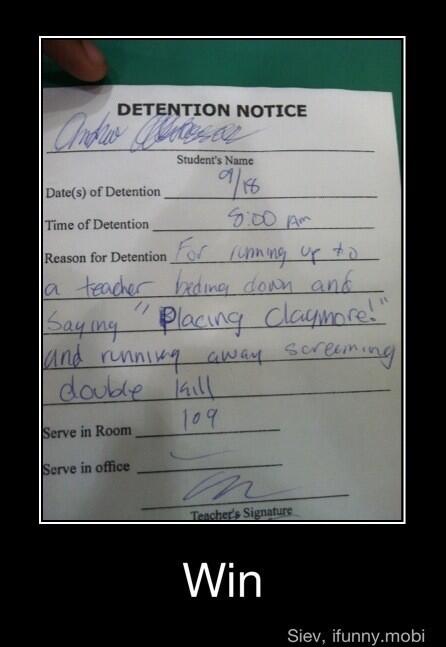 DETENTION NOTICE
Andrew
Student's Name
Date(s) of Detention 9/18
Time of Detention 8:00 Am
Reason for Detention For running up to
a teacher beding down and
Saying "Placing Claymore!"
and running away screaming
double kill
Serve in Room 109
Serve in office
Teacher's Signature
Win
Siev, ifunny.mobi